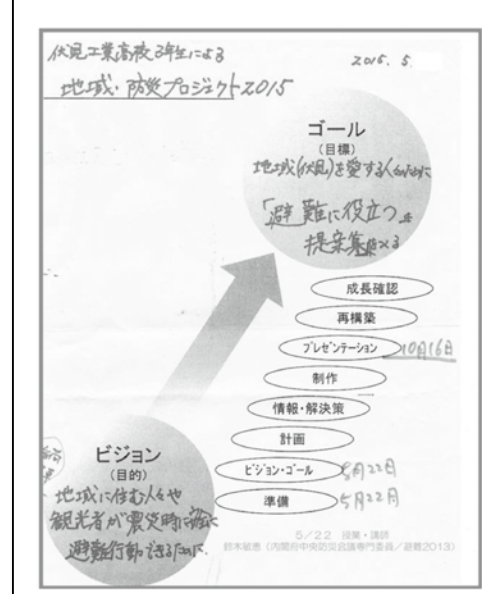 伏見工業高校3年生による
2015. 5.
地域・防災プロジェクト2015
ゴール
(目標)
地域(伏見)を愛する人のために
「避難に役立つ
提案集
成長確認
再構築
プレゼンテーション 10月16日
制作
情報・解決策
計画
ビジョン・ゴール 5月22日
準備 5月22日
ビジョン
(目的)
地域に住む人々や
観光者が震災時に
避難行動できるために.
5/22 授業・講師
鈴木敏恵(内閣府中央防災会議専門委員/避難2013)